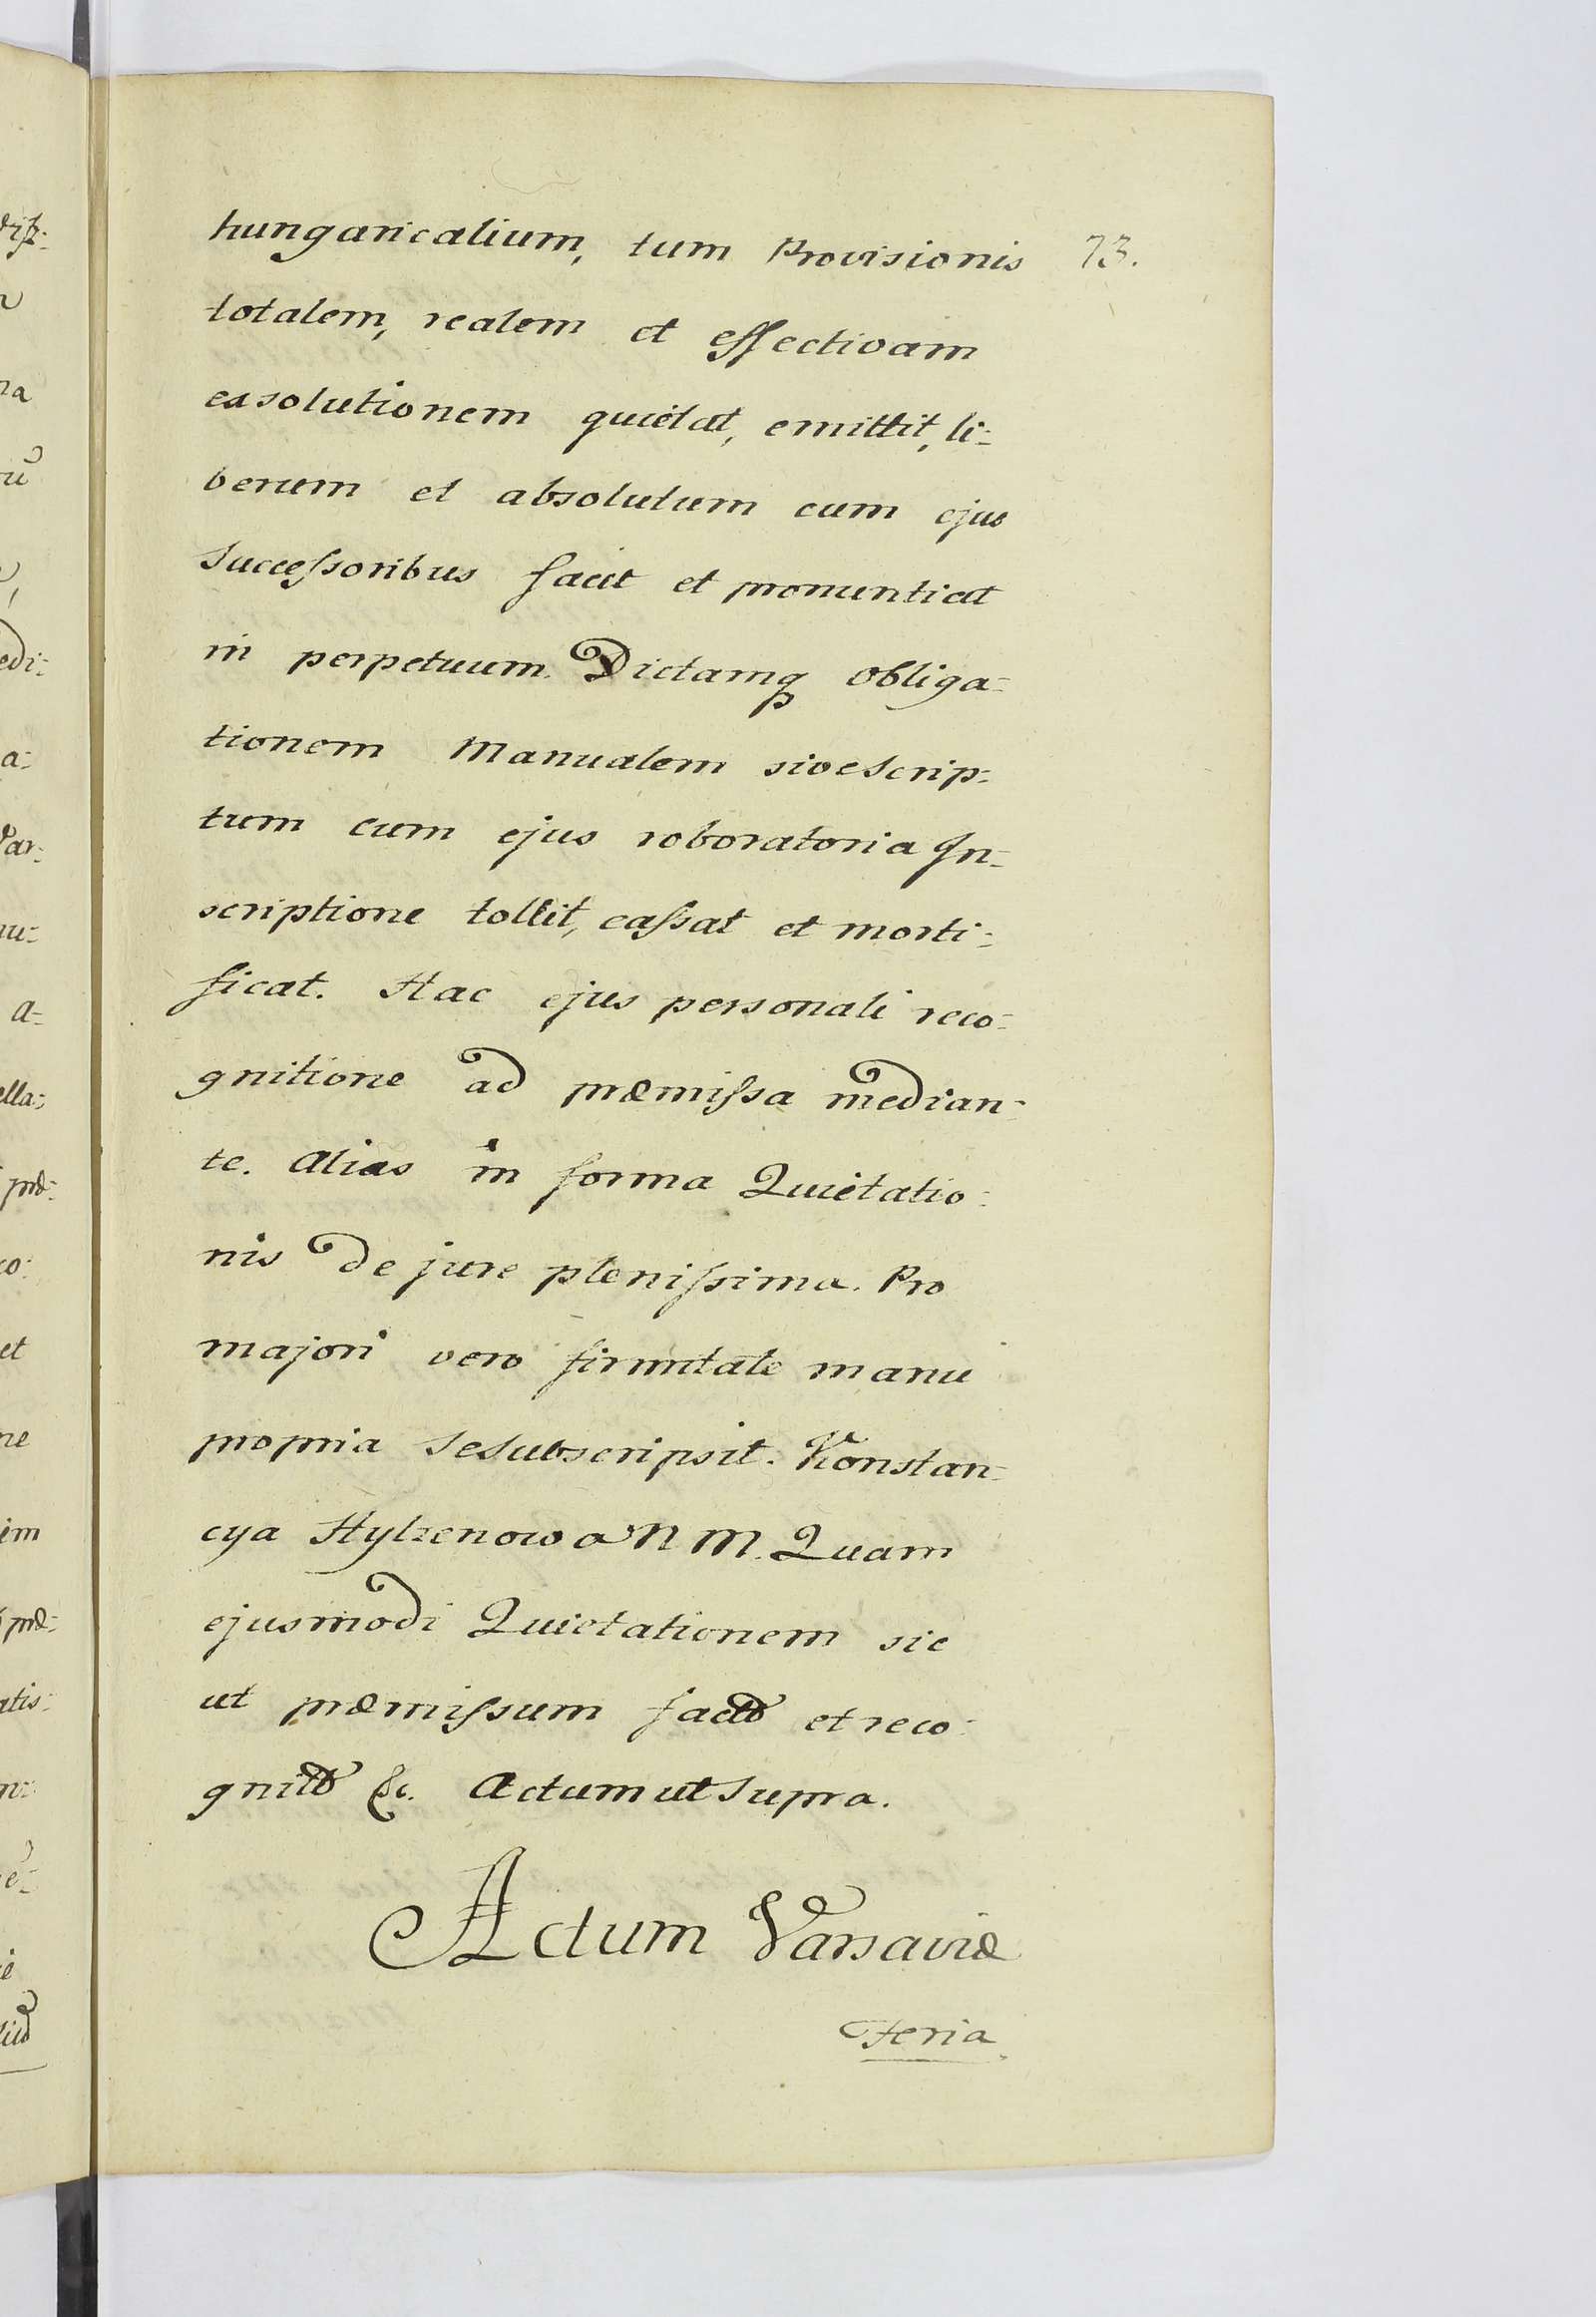 hungaricalium, tum Provisionis 73.
totalem, realem et effectivam
exsolutionem quietat, emittit, li=
berum et absolutum cum ejus
Succeſsoribus facit et pronuntiat
in perpetuum. Dictamq obliga=
tionem Manualem sive Scrip=
tum cum ejus roboratoria In=
scriptione tollit, caſsat et morti=
ficat. Hac ejus personali reco=
gnitione ad præmiſsa median=
te. Alias in forma Quietatio=
nis de jure pleniſsima. Pro
majori vero firmitate manu
propria se Subscripsit. Konstan=
cya Hylzenowa N M. Quam
ejusmodi Quietationem sic
ut præmiſsum facto et reco=
gnito &c. Actum ut Supra.
Actum Varsaviæ
Feria